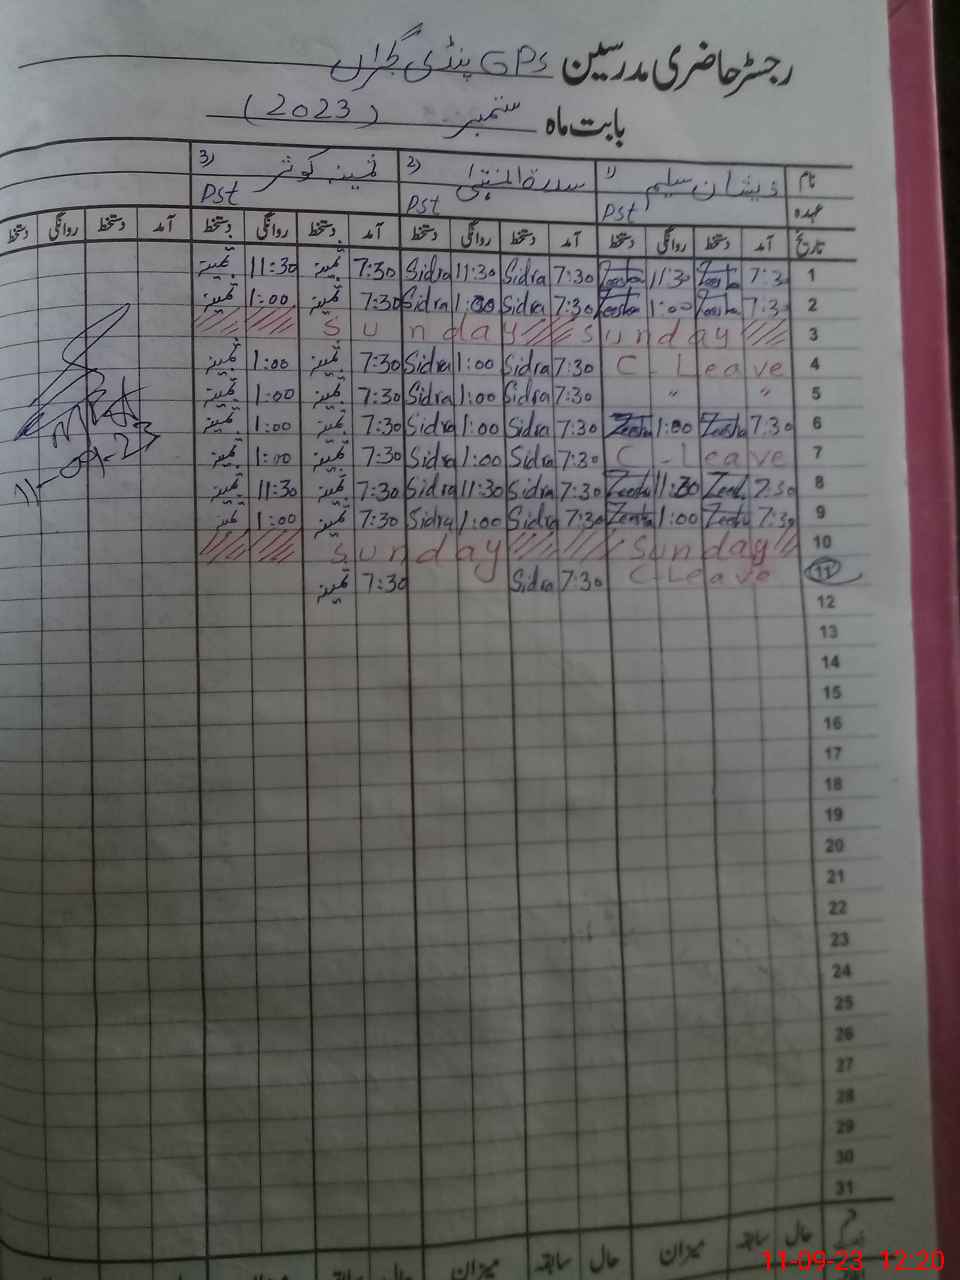 رجسٹر حاضری مدرسین GPs پنڈی گجراں
بابت ماہ ستمبر (2023)
نام 1) ذیشان سلیم 2) سدرۃ المنتہیٰ 3) ثمینہ کوثر
عہدہ Pst Pst Pst
تاریخ آمد دستخط روانگی دستخط آمد دستخط روانگی دستخط آمد دستخط روانگی دستخط آمد دستخط روانگی دستخط
1 7:30 Zeesha 11:30 Zeesha 7:30 Sidra 11:30 Sidra 7:30 ثمینہ 11:30 ثمینہ
2 7:30 Zeesha 1:00 Zeesha 7:30 Sidra 1:00 Sidra 7:30 ثمینہ 1:00 ثمینہ
3 Sunday Sunday
4 C-Leave 7:30 Sidra 1:00 Sidra 7:30 ثمینہ 1:00 ثمینہ
5 " " 7:30 Sidra 1:00 Sidra 7:30 ثمینہ 1:00 ثمینہ
6 7:30 Zeesha 1:00 Zeesha 7:30 Sidra 1:00 Sidra 7:30 ثمینہ 1:00 ثمینہ
7 C-Leave 7:30 Sidra 1:00 Sidra 7:30 ثمینہ 1:00 ثمینہ
8 7:30 Zeesha 11:30 Zeesha 7:30 Sidra 11:30 Sidra 7:30 ثمینہ 11:30 ثمینہ
9 7:30 Zeesha 1:00 Zeesha 7:30 Sidra 1:00 Sidra 7:30 ثمینہ 1:00 ثمینہ
10 Sunday Sunday
11 C-Leave 7:30 Sidra 7:30 ثمینہ
11-09-23
12
13
14
15
16
17
18
19
20
21
22
23
24
25
26
27
28
29
30
31
حال سابقہ میزان حال سابقہ میزان حال سابقہ
11-09-23 12:20